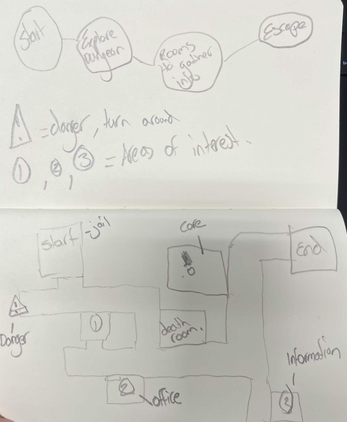 Start
Explore
Rooms
to gather
info
Escape
! = danger, turn around
1, 2, 3 = Areas of interest.
Start - jail
Core
!
End
Danger
1
death
room.
Information
2
office
3